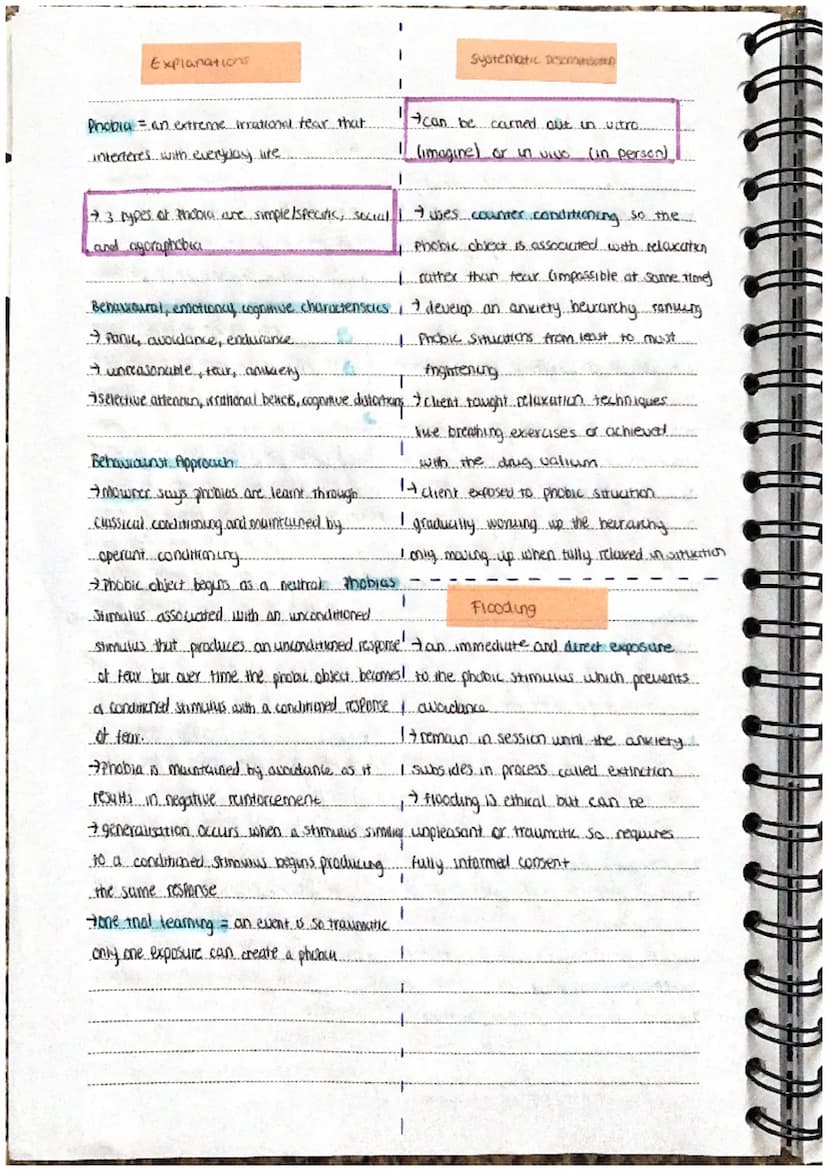 Explanations
Phobia = an extreme irrational fear that
interferes with everyday life
→ 3 types of Phobia are simple/specific, social
and agoraphobia
Behavioural, emotional, cognitive characteristics
→ Panic, avoidance, endurance
→ unreasonable, fear, anxiety
→ selective attention, irrational beliefs, cognitive distortions
Behaviourist Approach
→ Mowrer says phobias are learnt through
classical conditioning and maintained by
operant conditioning
→ Phobic object begins as a neutral Phobias
stimulus associated with an unconditioned
stimulus that produces an unconditioned response
of fear but over time the phobic object becomes
a conditioned stimulus with a conditioned response
of fear.
→ Phobia is maintained by avoidance as it
results in negative reinforcement
→ generalisation occurs when a stimulus similar
to a conditioned stimulus begins producing
the same response
→ one trial learning = an event is so traumatic
only one exposure can create a phobia
Systematic Desensitisation
→ can be carried out in vitro
(imagine) or in vivo (in person)
→ uses counter conditioning so the
phobic object is associated with relaxation
rather than fear (impossible at same time)
→ develop an anxiety heirarchy ranking
phobic situations from least to most
frightening
→ client taught relaxation techniques
like breathing exercises or achieved
with the drug valium
→ client exposed to phobic situation
gradually working up the heirarchy
only moving up when fully relaxed in situation
Flooding
→ an immediate and direct exposure
to the phobic stimulus which prevents
avoidance
→ remain in session until the anxiety
subsides in process called extinction
→ flooding is ethical but can be
unpleasant or traumatic so requires
fully informed consent